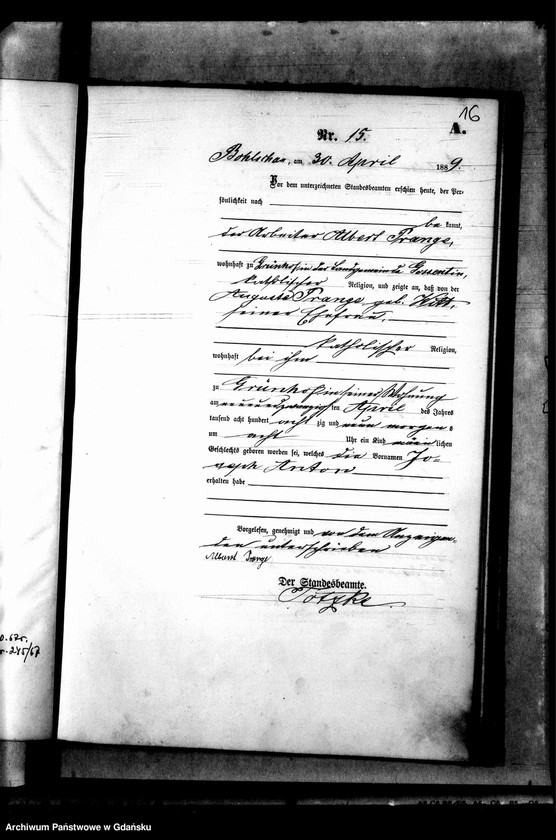 16
A.
Nr. 15.
Bohlschau, am 30. April 1889.
Vor dem unterzeichneten Standesbeamten erschien heute, der Per-
sönlichkeit nach
be kannt,
der Arbeiter Albert Prange,
wohnhaft zu Grünhof in der Landgemeinde Gossentin,
katholischer Religion, und zeigte an, daß von der
Auguste Prange geb. Kitt,
seiner Ehefrau,
katholischer Religion,
wohnhaft bei ihm
zu Grünhof in seiner Wohnung
am neunundzwanzig ten April des Jahres
tausend acht hundert acht zig und neun morgens
um acht Uhr ein Kind männ lichen
Geschlechts geboren worden sei, welches die Vornamen Jo-
seph Anton
erhalten habe
Vorgelesen, genehmigt und von dem Anzeigen-
den unterschrieben
Albert Prange
Der Standesbeamte.
Totzke
r. 245/67
Archiwum Państwowe w Gdańsku